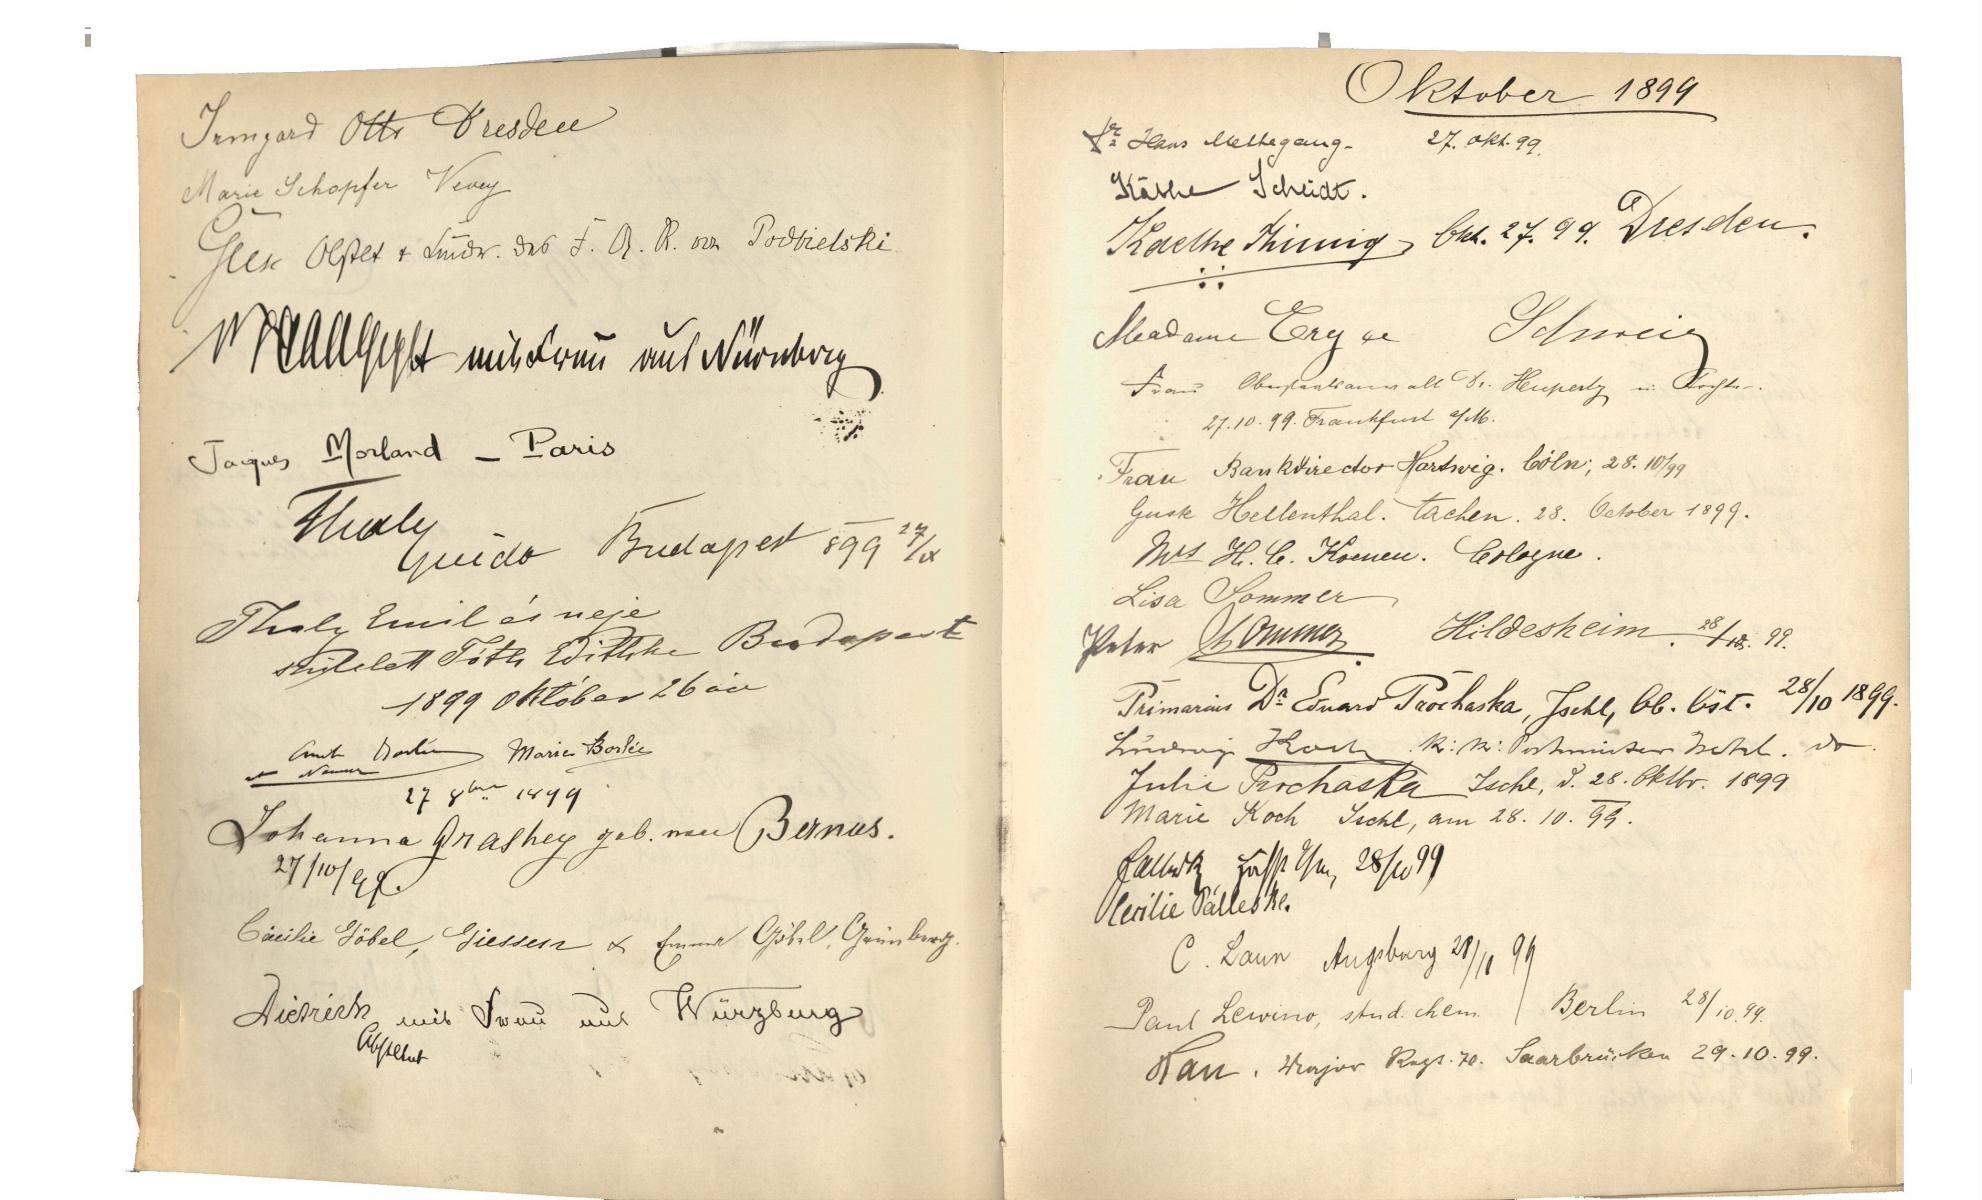 Irmgard Otto Dresden
Marie Schopfer Vevey
Oberst des F. A. R. von Podbielski
mit Frau aus Nürnberg
Jacques Morland – Paris
Thaly
Guido Budapest 899 27/X
Thaly Emil és neje
született Tóth Editke Budapest
1899 Október 26án
Marie Borlée
27 8bre 1899
Johanna Grashey geb. von Bernus.
27/10/99.
Cäcilie Göbel, Giessen & Emma Göbel, Grünberg.
Dietrich mit Frau aus Würzburg
Oktober 1899
Hans Mettegang. 27. Okt. 99.
Käthe Scheidt.
Kaethe Thimig, Okt. 27. 99. Dresden.
Madame Schweiz
Frau Oberstaatsanwalt Dr. Hupertz u. Tochter.
27.10.99. Frankfurt a/M.
Frau Bankdirector Hartwig. Cöln, 28. 10/99
Gust Hellenthal. Aachen. 28. October 1899.
Mrs H. C. Koenen. Cologne.
Lisa Sommer
Peter Sommer Hildesheim. 28/10. 99.
Primarius Dr. Eduard Prochaska, Ischl, Ob. Öst. 28/10 1899.
Ludwig Koch k: k: do.
Julie Prochaska Ischl, d. 28. Oktbr. 1899
Marie Koch Ischl, am 28. 10. 99.
Palleske 28/10 99
Cecilie Palleske.
C. Laun Augsburg 28/10 99
Paul Lewino, stud. chem. Berlin 28/10.99.
Rau, Major Regt. 70. Saarbrücken 29.10.99.